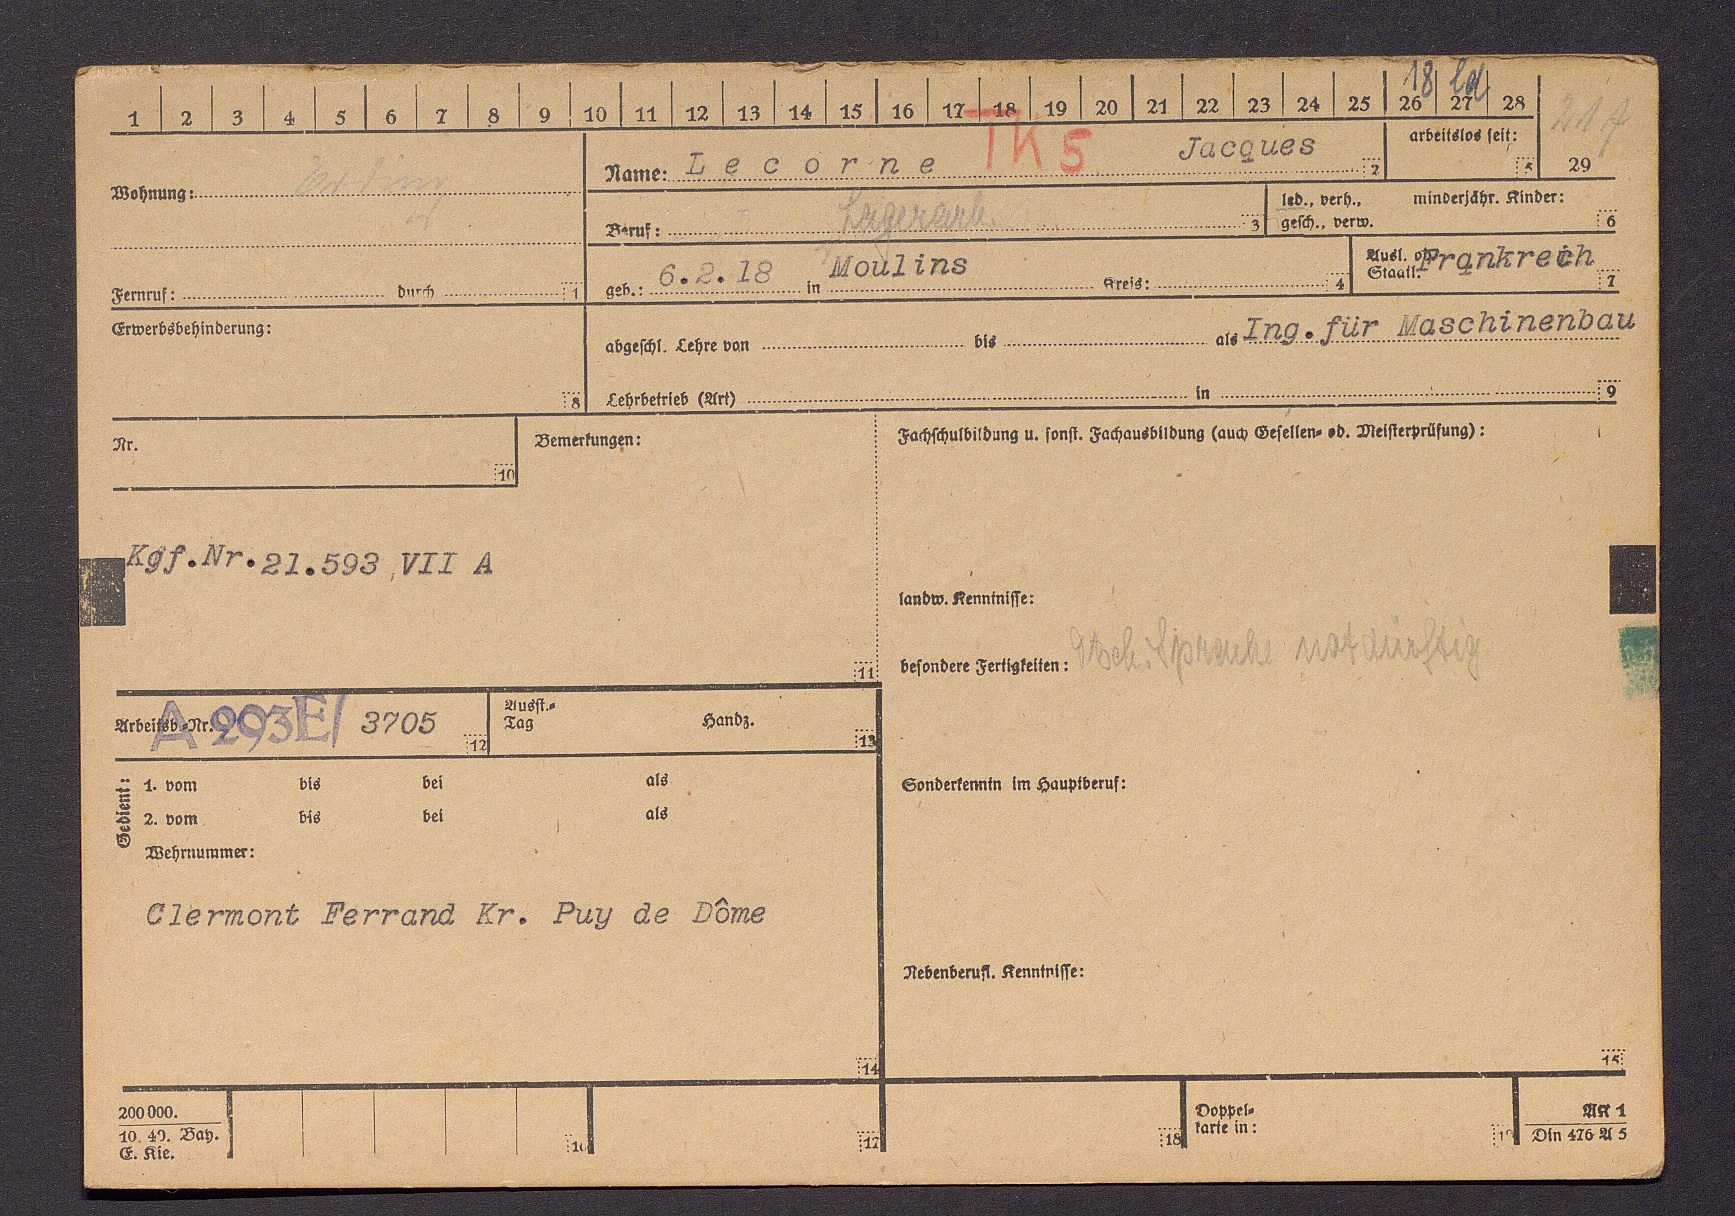 18 Ld
1 2 3 4 5 6 7 8 9 10 11 12 13 14 15 16 17 18 19 20 21 22 23 24 25 26 27 28
217
29
Wohnung: Erding
Name: Lecorne TK 5 Jacques 2
arbeitslos seit: 5
Beruf: Lagerarb. 3
led., verh., minderjähr. Kinder:
gesch., verw. 6
Fernruf: durch 1
geb.: 6.2.18 in Moulins Kreis: 4
Ausl. od. Frankreich
Staatl. 7
Erwerbsbehinderung: 8
abgeschl. Lehre von bis als Ing. für Maschinenbau
Lehrbetrieb (Art) in 9
Nr. 10
Bemerkungen:
Fachschulbildung u. sonst. Fachausbildung (auch Gesellen- od. Meisterprüfung):
Kgf.Nr.21.593 VII A
landw. Kenntnisse:
besondere Fertigkeiten: Dtsch. Sprache notdürftig
11
Arbeitsb.-Nr. A 293E/ 3705 12
Ausst.-
Tag Handz. 13
Gedient:
1. vom bis bei als
2. vom bis bei als
Wehrnummer:
Sonderkenntn im Hauptberuf:
Clermont Ferrand Kr. Puy de Dôme
Nebenberufl. Kenntnisse:
14
15
200 000.
10. 40. Bay.
E. Kie.
16
17
18
Doppel-
karte in: 19
AK 1
Din 476 A 5